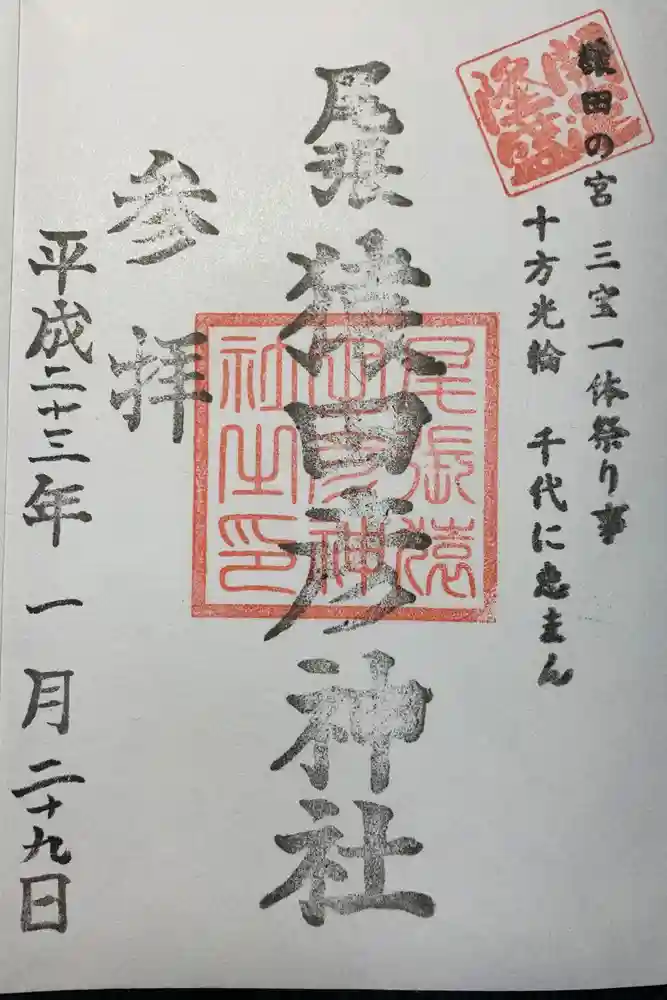 猿田の宮 三宝一体祭り事
十方光輪 千代に恵まん
尾張
猿田彦神社
参拝
平成二十三年 一月 二十九日
開運
隆盛
尾張猿
田彦神
社之印